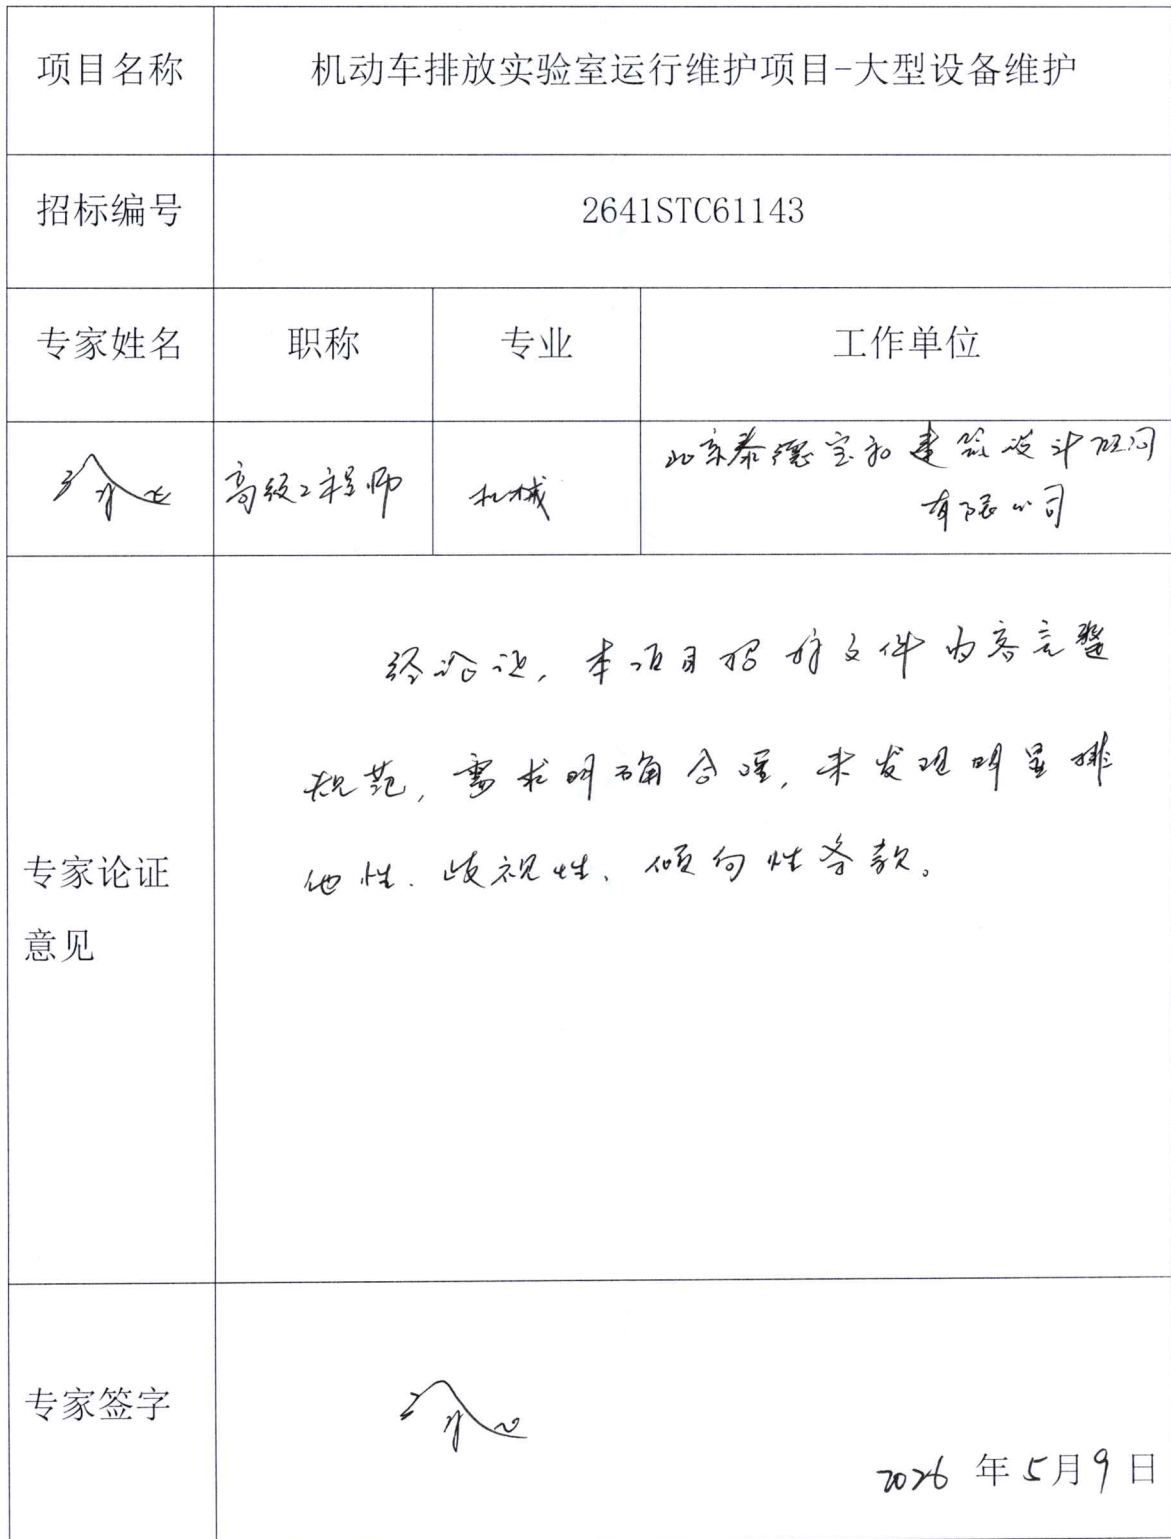 项目名称 机动车排放实验室运行维护项目-大型设备维护
招标编号 2641STC61143
专家姓名 职称 专业 工作单位
高级工程师 机械 北京泰德宝和建筑设计顾问
有限公司
经论证，本项目招标文件内容完整
规范，需求明确合理，未发现明显排
他性、歧视性、倾向性条款。
专家论证
意见
专家签字
2026 年 5月9日